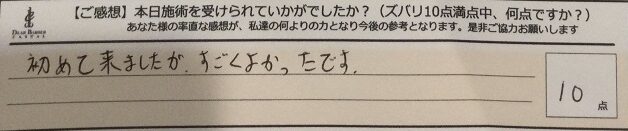 【ご感想】本日施術を受けられていかがでしたか？（ズバリ10点満点中、何点ですか？）
あなた様の率直な感想が、私達の何よりの力となり今後の参考となります。是非ご協力お願いします
初めて来ましたが、すごくよかったです。
10
点